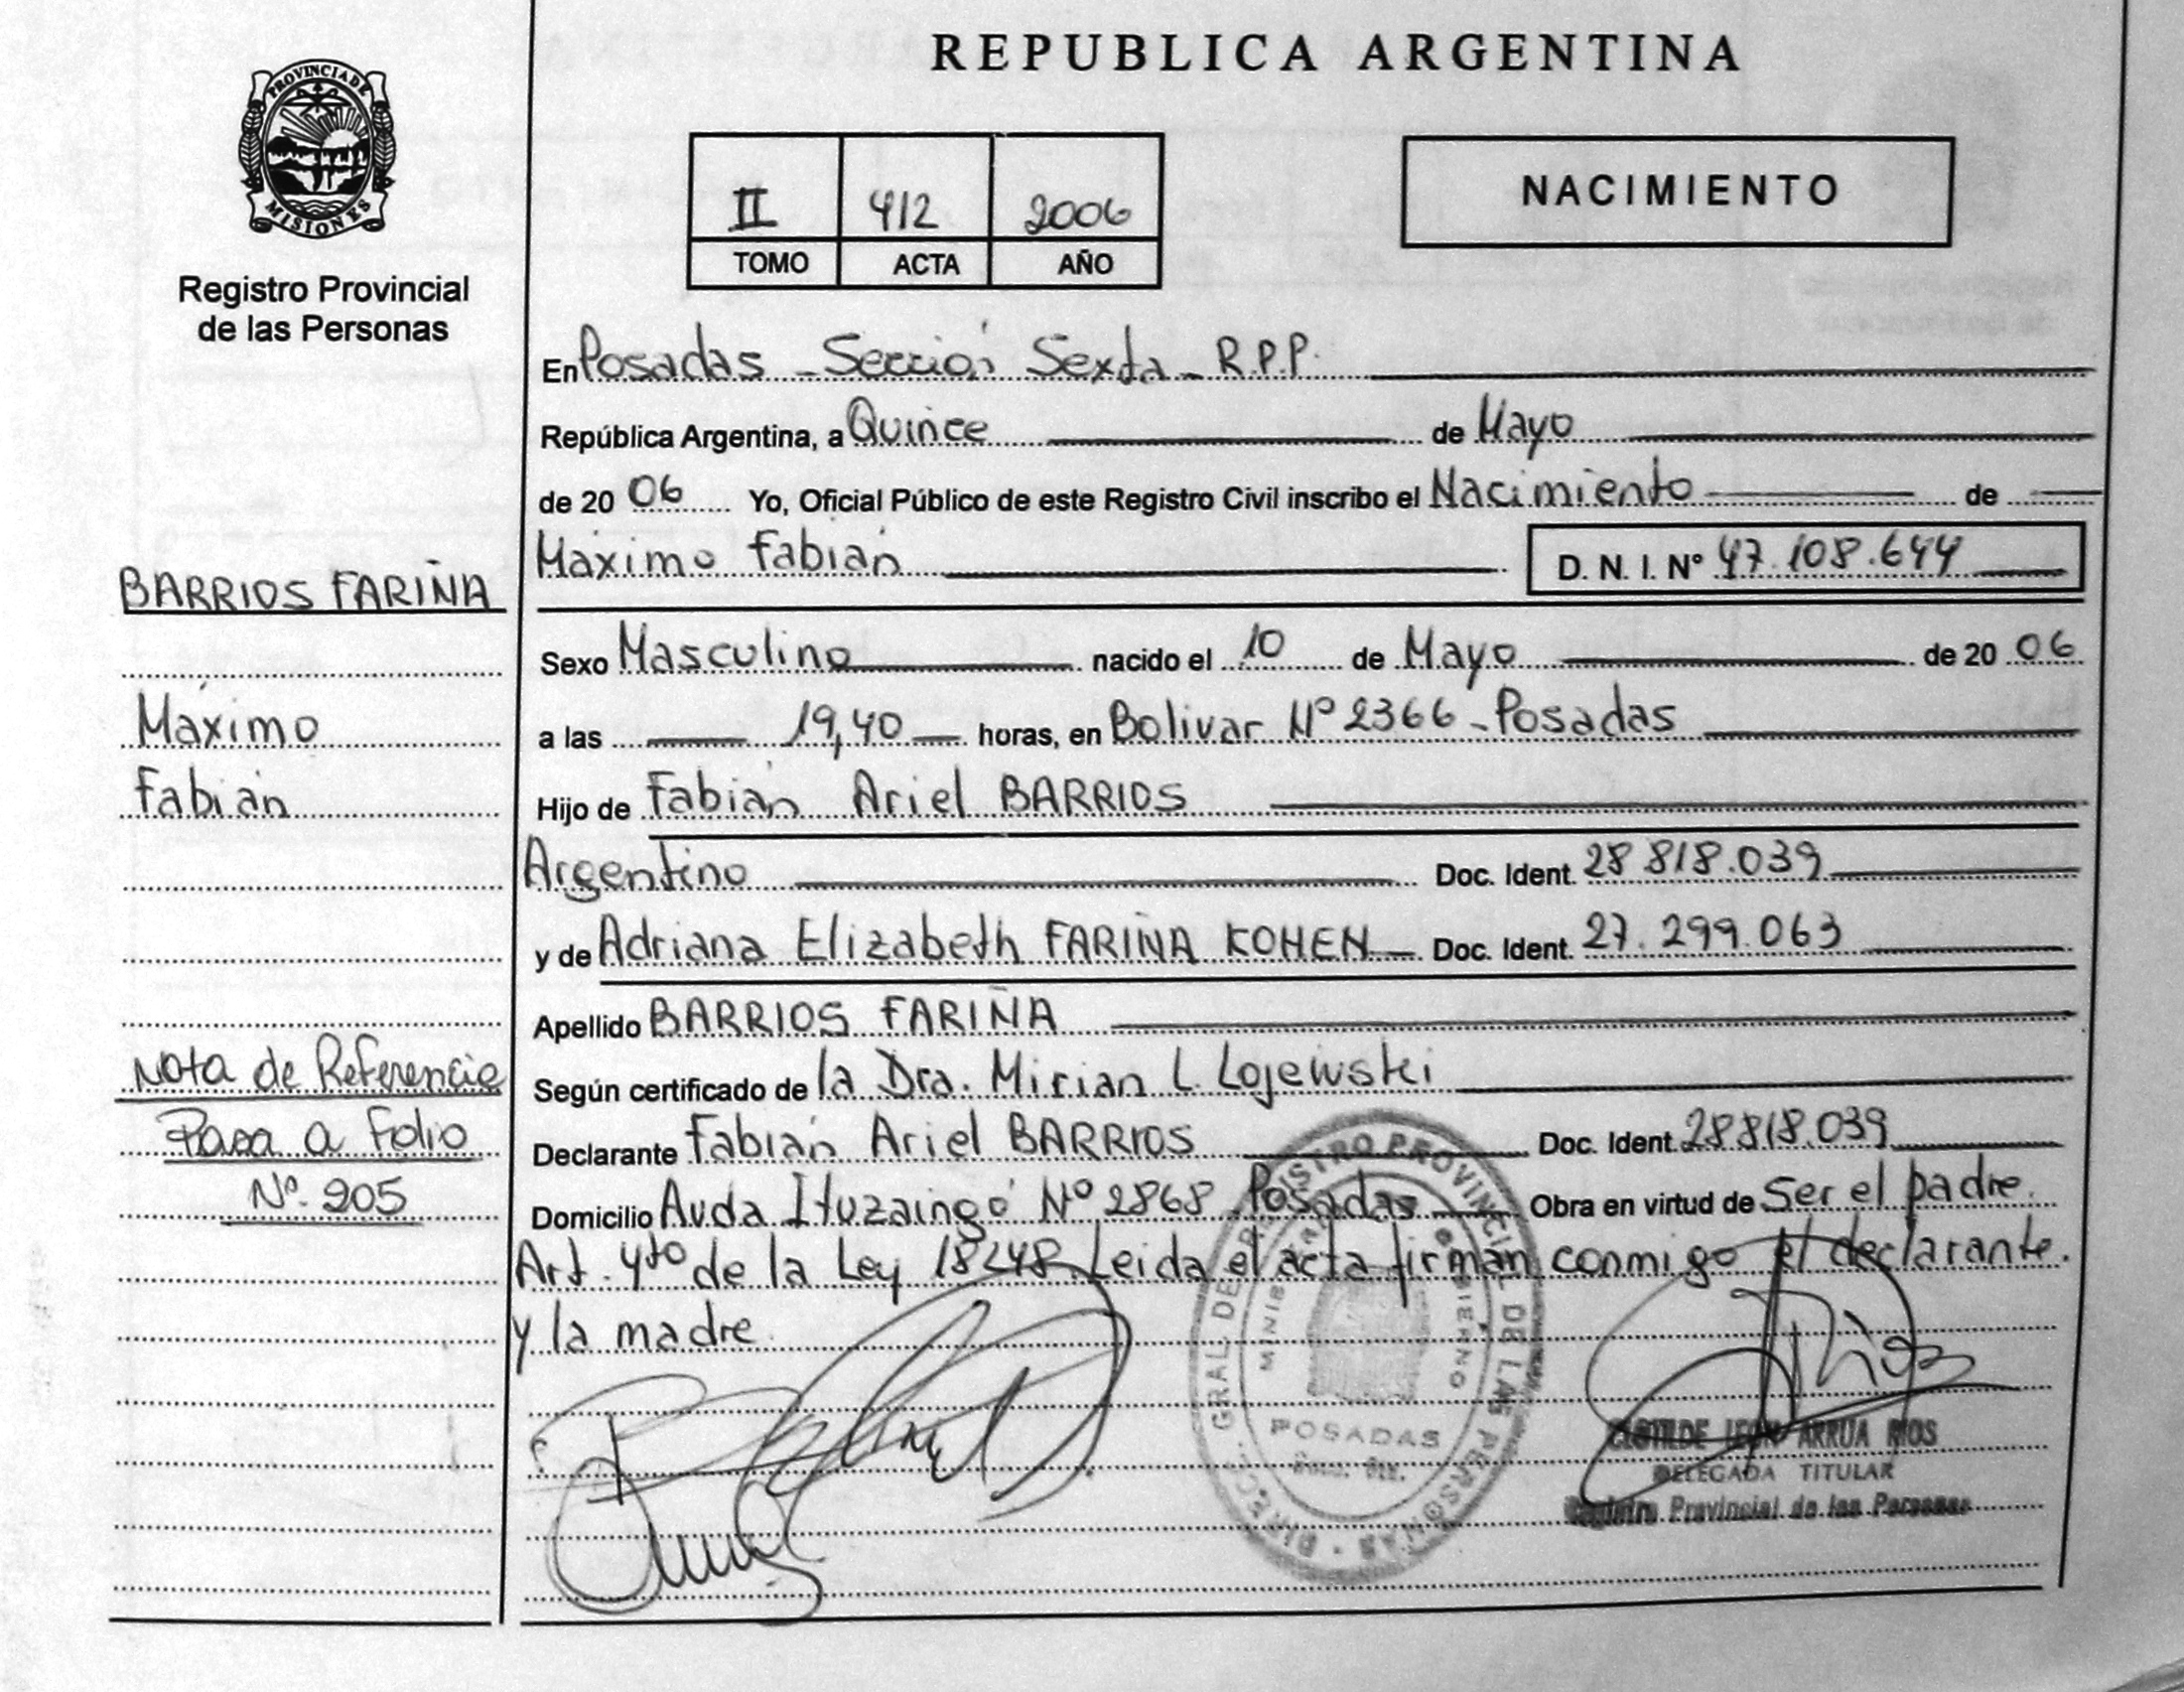 PROVINCIA DE
MISIONES
Registro Provincial
de las Personas
BARRIOS FARIÑA
Máximo
Fabián
Nota de Referencia
Pasa a Folio
Nº 205
REPUBLICA ARGENTINA
II 412 2006
TOMO ACTA AÑO
NACIMIENTO
En Posadas - Sección Sexta - R.P.P.
República Argentina, a Quince de Mayo
de 20 06 Yo, Oficial Público de este Registro Civil inscribo el Nacimiento de
Máximo Fabián D. N. I. Nº 47.108.644
Sexo Masculino nacido el 10 de Mayo de 20 06
a las 19,40 horas, en Bolivar Nº 2366 - Posadas
Hijo de Fabián Ariel BARRIOS
Argentino Doc. Ident. 28 818.039
y de Adriana Elizabeth FARIÑA KOHEN Doc. Ident. 27.299.063
Apellido BARRIOS FARIÑA
Según certificado de la Dra. Mirian L. Lojewski
Declarante Fabián Ariel BARRIOS Doc. Ident. 28818.039
Domicilio Avda Ituzaingó Nº 2868 Posadas Obra en virtud de Ser el padre.
Art. 4to de la Ley 18248. Leida el acta firman conmigo el declarante.
y la madre.
DIRECC. GRAL. DE REGISTRO PROVINCIAL DE LAS PERSONAS
POSADAS
CLOTILDE LEON ARRUA RIOS
DELEGADA TITULAR
Registro Provincial de las Personas